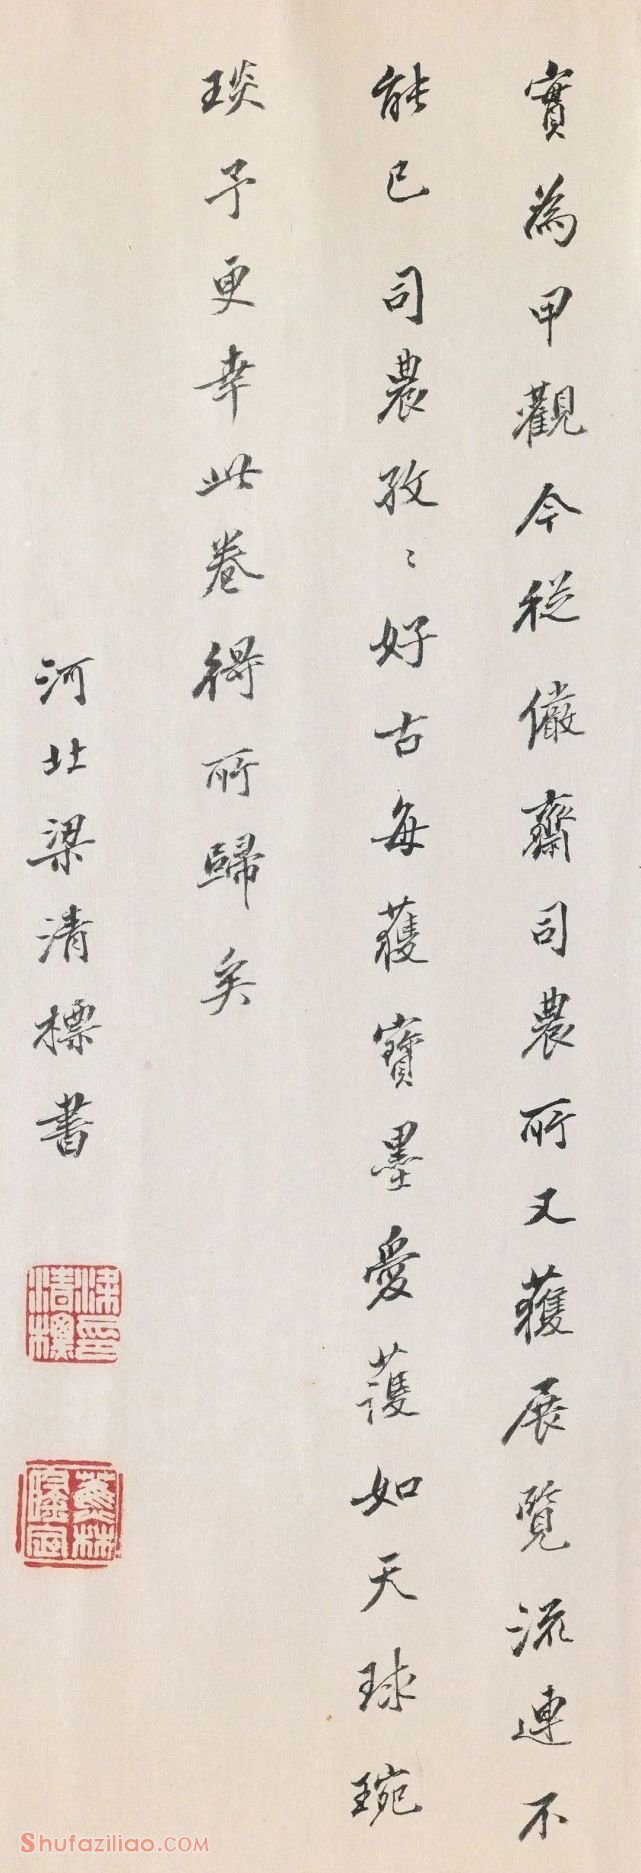 實為甲觀今從儼齋司農所又獲展覽流連不
能已司農孜〻好古每獲寶墨愛護如天球琬
琰予更幸此卷得所歸矣
河北梁清標書
梁清標印
蕉林
Shufaziliao.COM